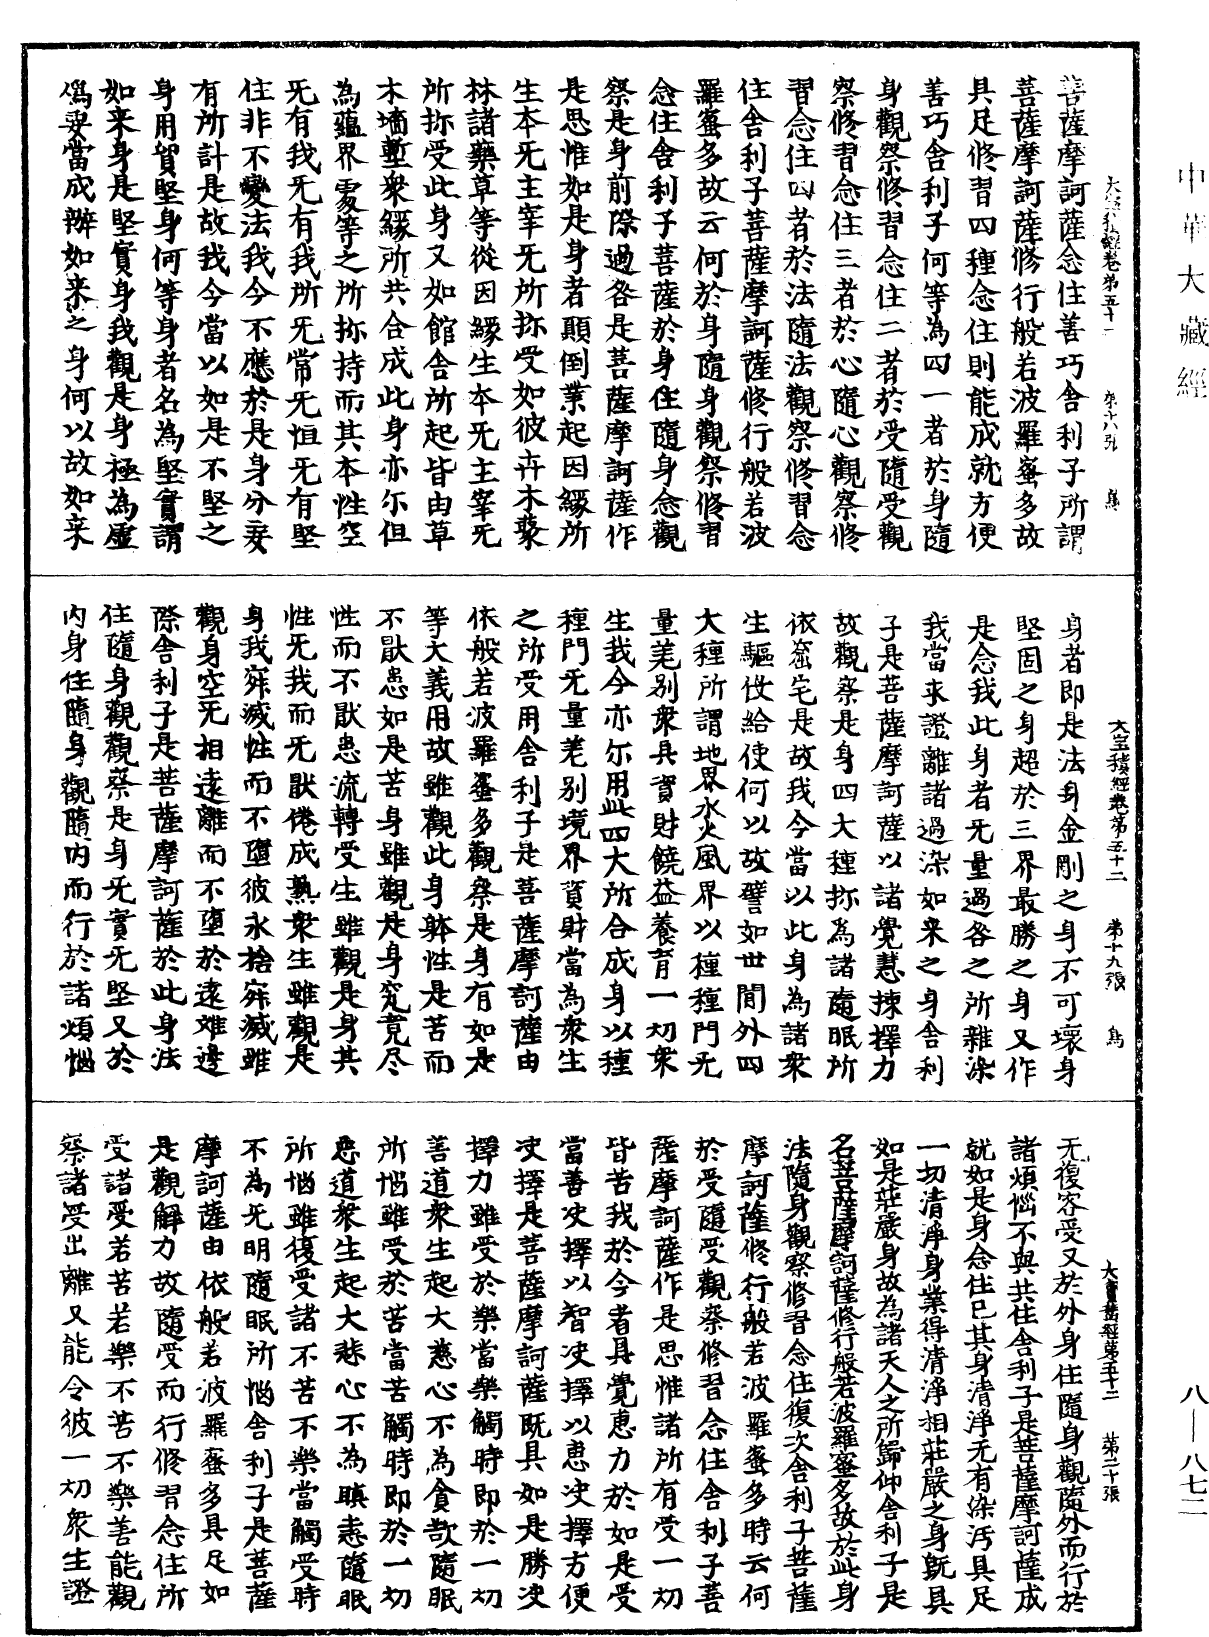 中華大藏經
大寶積經卷第五十二 第十八張 鳥
菩薩摩訶薩念住善巧舍利子所謂
菩薩摩訶薩修行般若波羅蜜多故
具足修習四種念住則能成就方便
善巧舍利子何等為四一者於身隨
身觀察修習念住二者於受隨受觀
察修習念住三者於心隨心觀察修
習念住四者於法隨法觀察修習念
住舍利子菩薩摩訶薩修行般若波
羅蜜多故云何於身隨身觀察修習
念住舍利子菩薩於身住隨身念觀
察是身前際過咎是菩薩摩訶薩作
是思惟如是身者顛倒業起因緣所
生本无主宰无所攝受如彼卉木藂
林諸藥草等從因緣生本无主宰无
所攝受此身又如館舍所起皆由草
木墻塹衆緣所共合成此身亦尒但
為蘊界處等之所攝持而其本性空
无有我无有我所无常无恒无有堅
住非不變法我今不應於是身分妄
有所計是故我今當以如是不堅之
身用貿堅身何等身者名為堅實謂
如来身是堅實身我觀是身極為虛
偽要當成辦如来之身何以故如来
大寶積經卷第五十二 第十九張 鳥
身者即是法身金剛之身不可壞身
堅固之身超於三界最勝之身又作
是念我此身者无量過咎之所雜染
我當求證離諸過染如来之身舍利
子是菩薩摩訶薩以諸覺慧揀擇力
故觀察是身四大種攝為諸隨眠所
依窟宅是故我今當以此身為諸衆
生驅伇給使何以故譬如世間外四
大種所謂地界水火風界以種種門无
量差別衆具資財饒益養育一切衆
生我今亦尒用此四大所合成身以種
種門无量差別境界資財當為衆生
之所受用舍利子是菩薩摩訶薩由
依般若波羅蜜多觀察是身有如是
等大義用故雖觀此身體性是苦而
不猒患如是苦身雖觀是身究竟盡
性而不猒患流轉受生雖觀是身其
性无我而无猒倦成熟衆生雖觀是
身我寂滅性而不墮彼永捨寂滅雖
觀身空无相遠離而不墮於遠離邊
際舍利子是菩薩摩訶薩於此身法
住隨身觀觀察是身无實无堅又於
内身住隨身觀隨内而行於諸煩惱
大寶積經卷第五十二 第二十張
无復容受又於外身住隨身觀隨外而行於
諸煩惱不與共住舍利子是菩薩摩訶薩成
就如是身念住已其身清淨无有染汚具足
一切清淨身業得清淨相莊嚴之身既具
如是莊嚴身故為諸天人之所歸仰舍利子是
名菩薩摩訶薩修行般若波羅蜜多故於此身
法隨身觀察修習念住復次舍利子菩薩
摩訶薩修行般若波羅蜜多時云何
於受隨受觀察修習念住舍利子菩
薩摩訶薩作是思惟諸所有受一切
皆苦我於今者具覺惠力於如是受
當善决擇以智决擇以惠决擇方便
决擇是菩薩摩訶薩既具如是勝决
擇力雖受於樂當樂觸時即於一切
善道衆生起大慈心不為貪欲隨眠
所惱雖受於苦當苦觸時即於一切
惡道衆生起大悲心不為瞋恚隨眠
所惱雖復受諸不苦不樂當觸受時
不為无明隨眠所惱舍利子是菩薩
摩訶薩由依般若波羅蜜多具足如
是觀解力故隨受而行修習念住所
受諸受若苦若樂不苦不樂善能觀
察諸受出離又能令彼一切衆生證
八—八七二